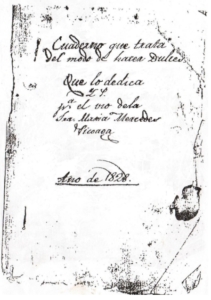 Cuaderno que trata
Del modo de hacer Dulces
Que lo dedica
pª el uso dela
Sra Maria Mercedes
Año de 1828